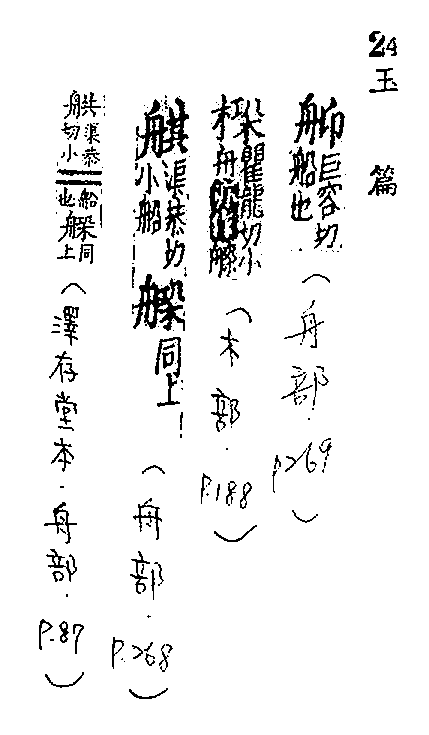 24
玉篇
巨容切船也(舟部.P.269)
瞿龍切小舟(木部.P.188)
渠恭切小船 同上(舟部.P.268)
渠恭切小船也 同上(澤存堂本.舟部.P.87)